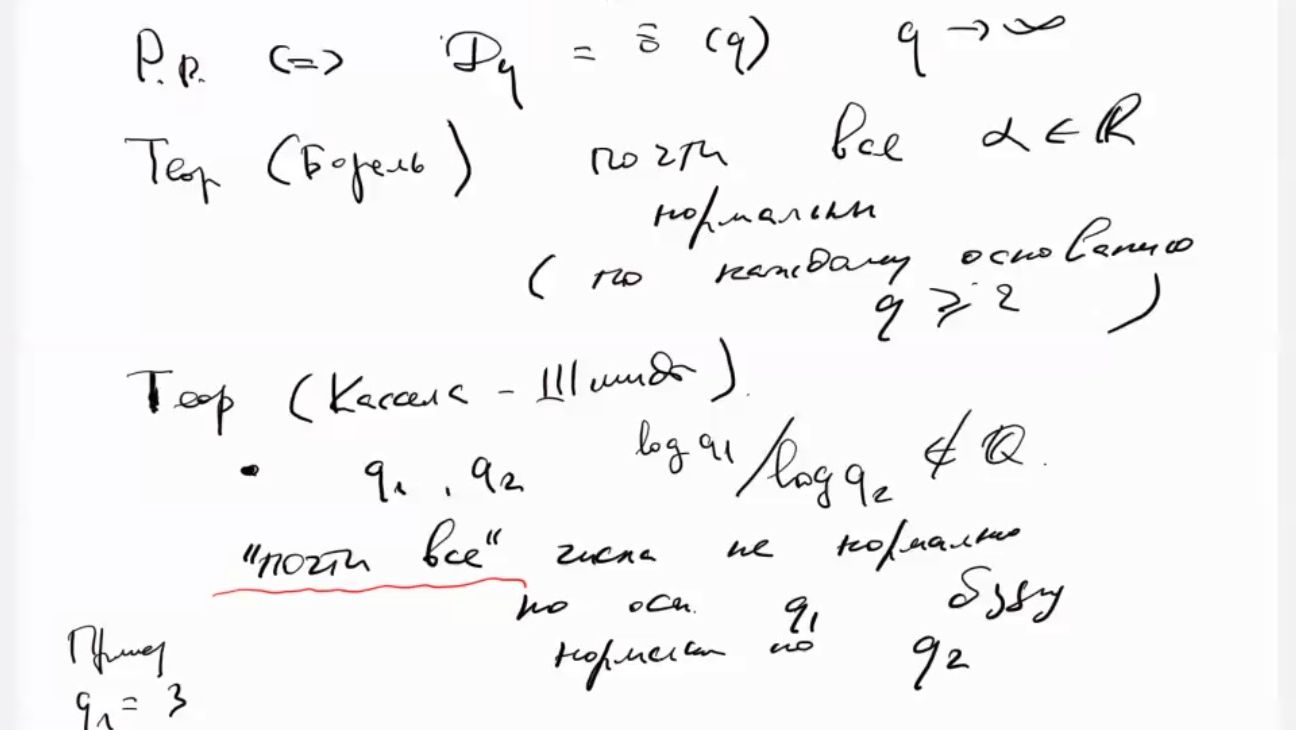 Р.р. <=> D_q = ō(q) q → ∞
Теор (Борель) почти все α ∈ ℝ
нормальны
( по каждому основанию
q ⩾ 2 )
Теор (Касселс - Шмидт).
• q₁, q₂ log q₁ / log q₂ ∉ ℚ.
"почти все" числа не нормально
по осн. q₁ будут
нормальн по q₂
Пример
q₁ = 3